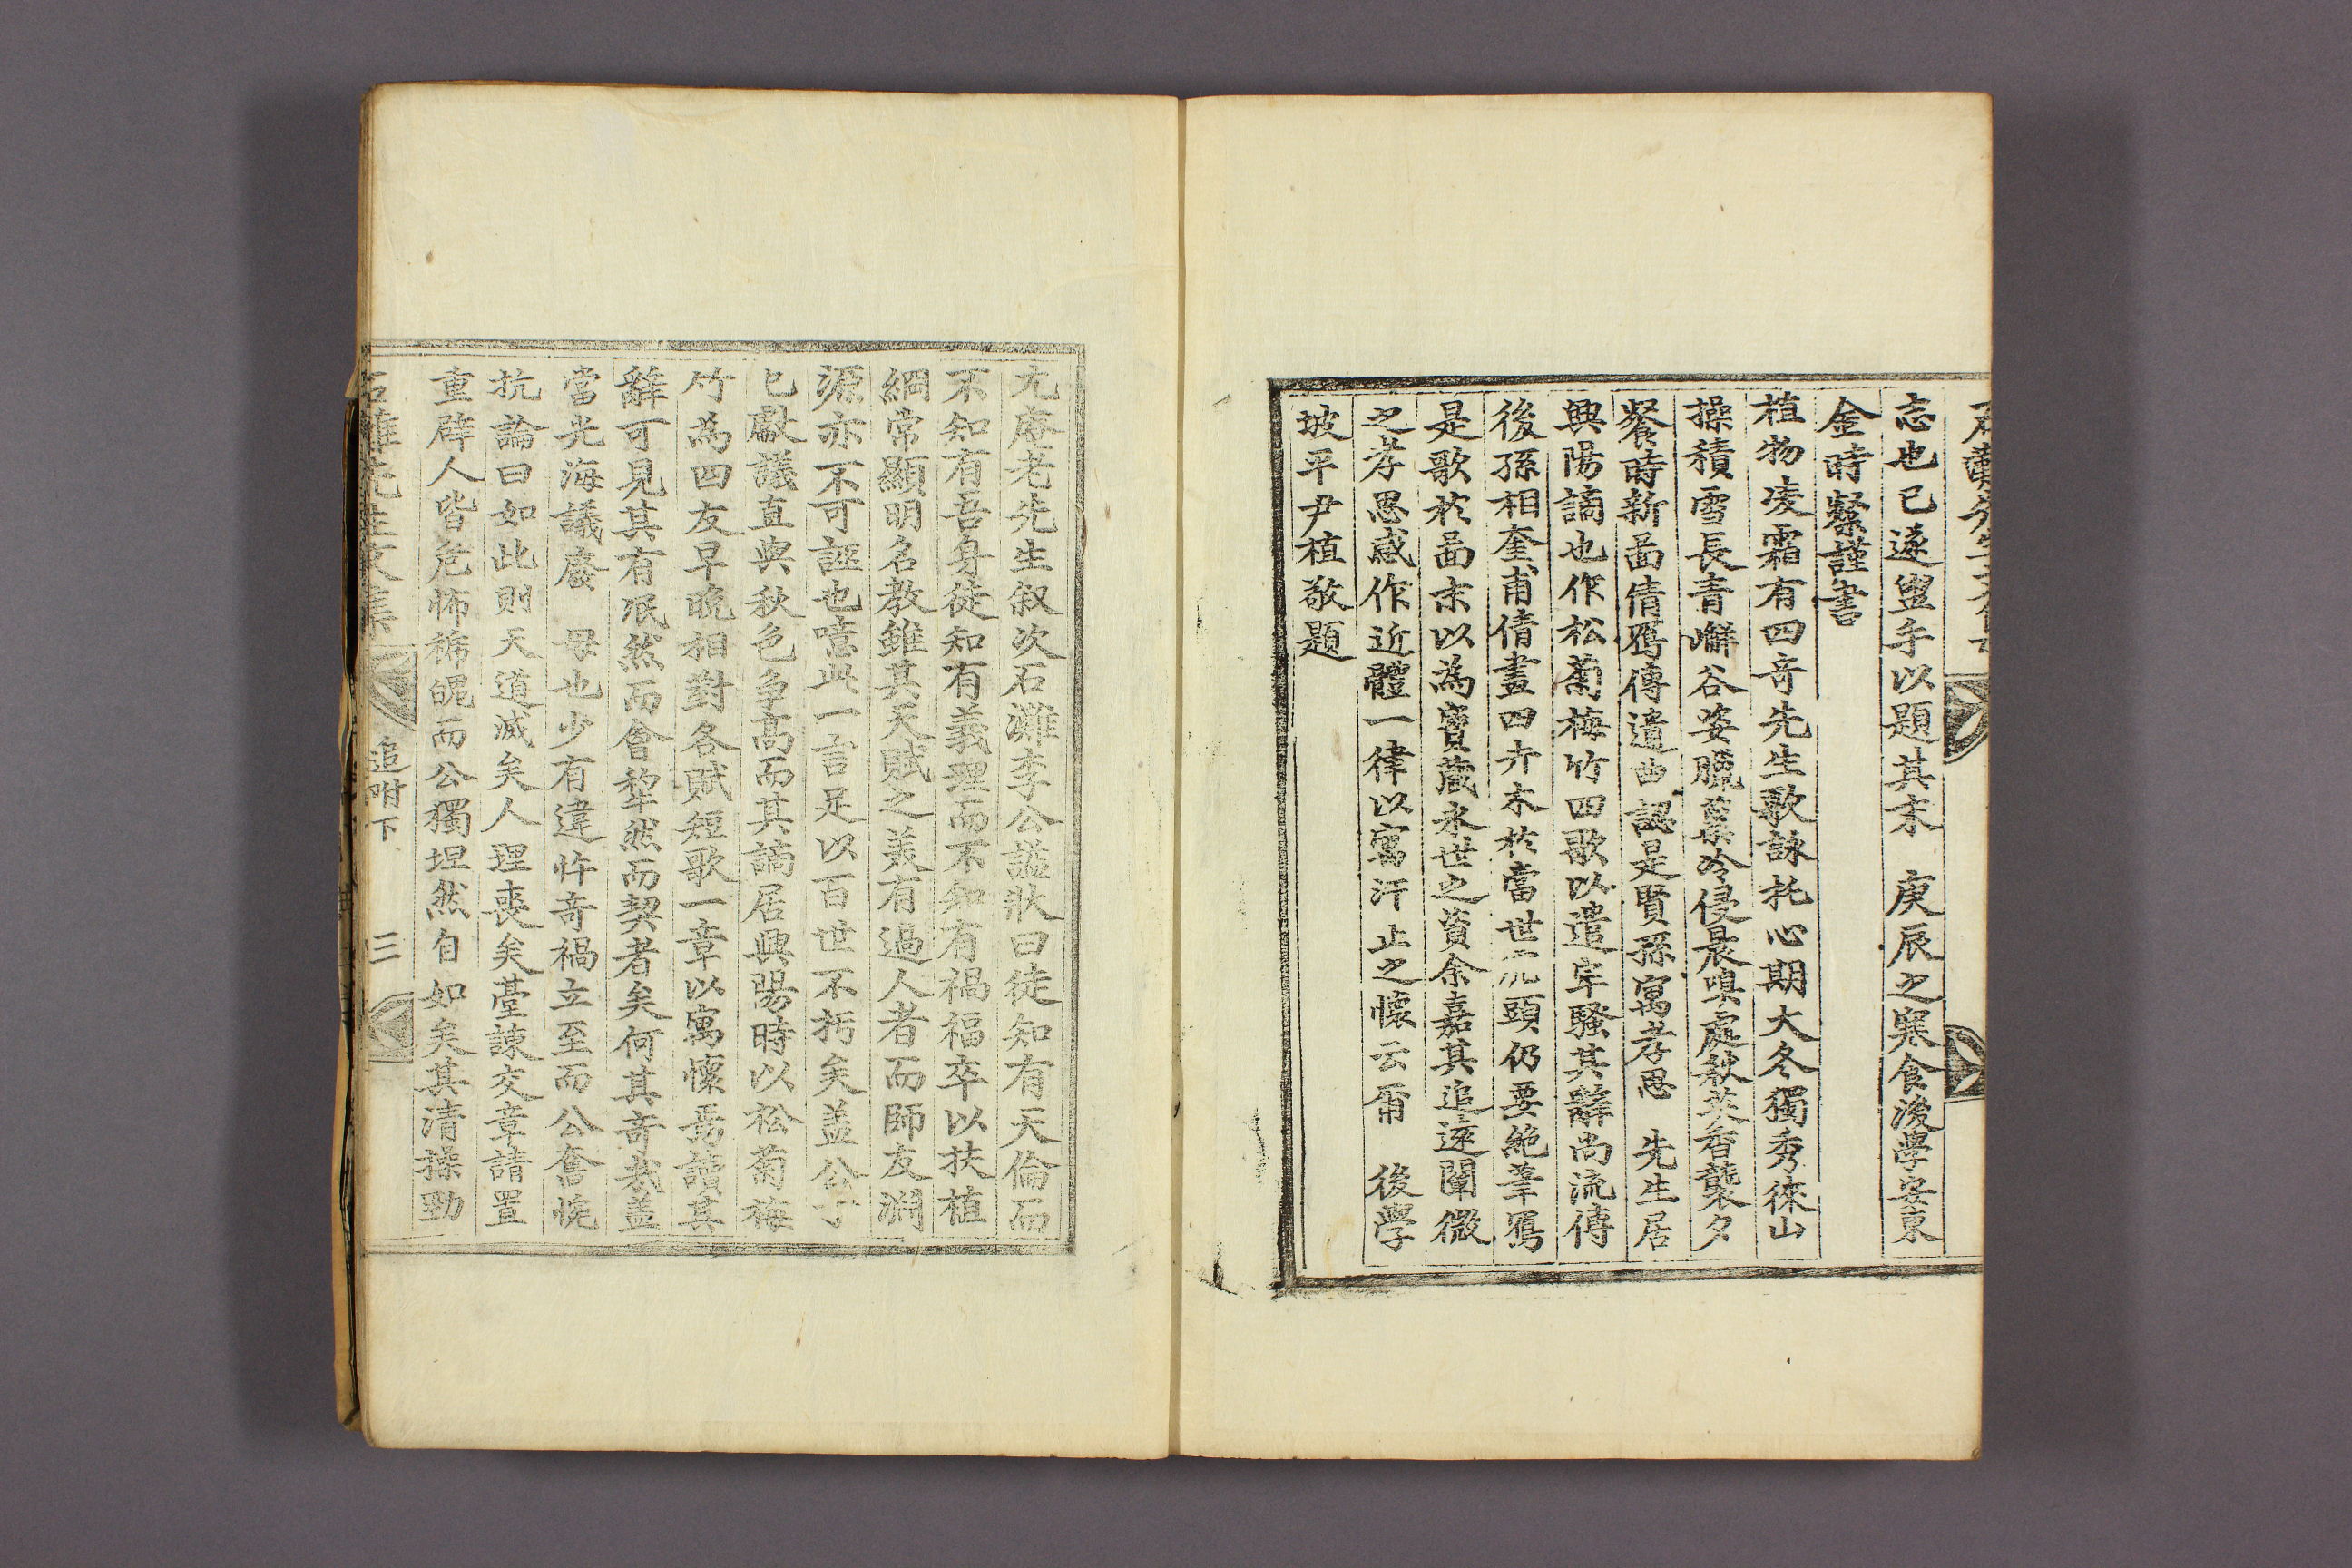 忘也已遂盥手以題其末　庚辰之寒食後學安東
金時粲謹書
植物凌霜有四奇先生歌詠托心期大冬獨秀徠山
操積雪長青嶰谷姿臘蘂冷侵晨嗅處秋英香襲夕
餐時新畵倩鴈傳遺曲認是賢孫寓孝思　先生居
興陽謫也作松菊梅竹四歌以遣牢騷其辭尚流傳
後孫相奎甫倩畫四卉木於當世流頭仍要絶筆鴈
是歌於畵末以為寶藏永世之資余嘉其追遠闡微
之孝思感作近體一律以寓汗止之懷云爾　後學
坡平尹植敬題
尤庵老先生叙次石灘李公謚狀曰徒知有天倫而
不知有吾身徒知有義理而不知有禍福卒以扶植
綱常顯明名教雖其天賦之美有過人者而師友淵
源亦不可誣也噫此一言足以百世不朽矣盖公丁
巳獻議直與秋色爭高而其謫居興陽時以松菊梅
竹為四友早晩相對各賦短歌一章以寓懷焉讀其
辭可見其有泯然而會犂然而契者矣何其奇哉盖
當光海議廢　母也少有違忤奇禍立至而公奮慨
抗論曰如此則天道滅矣人理喪矣臺諫交章請置
重辟人皆危怖褫魄而公獨坦然自如矣其清操勁
石灘先生文集　追附下　三